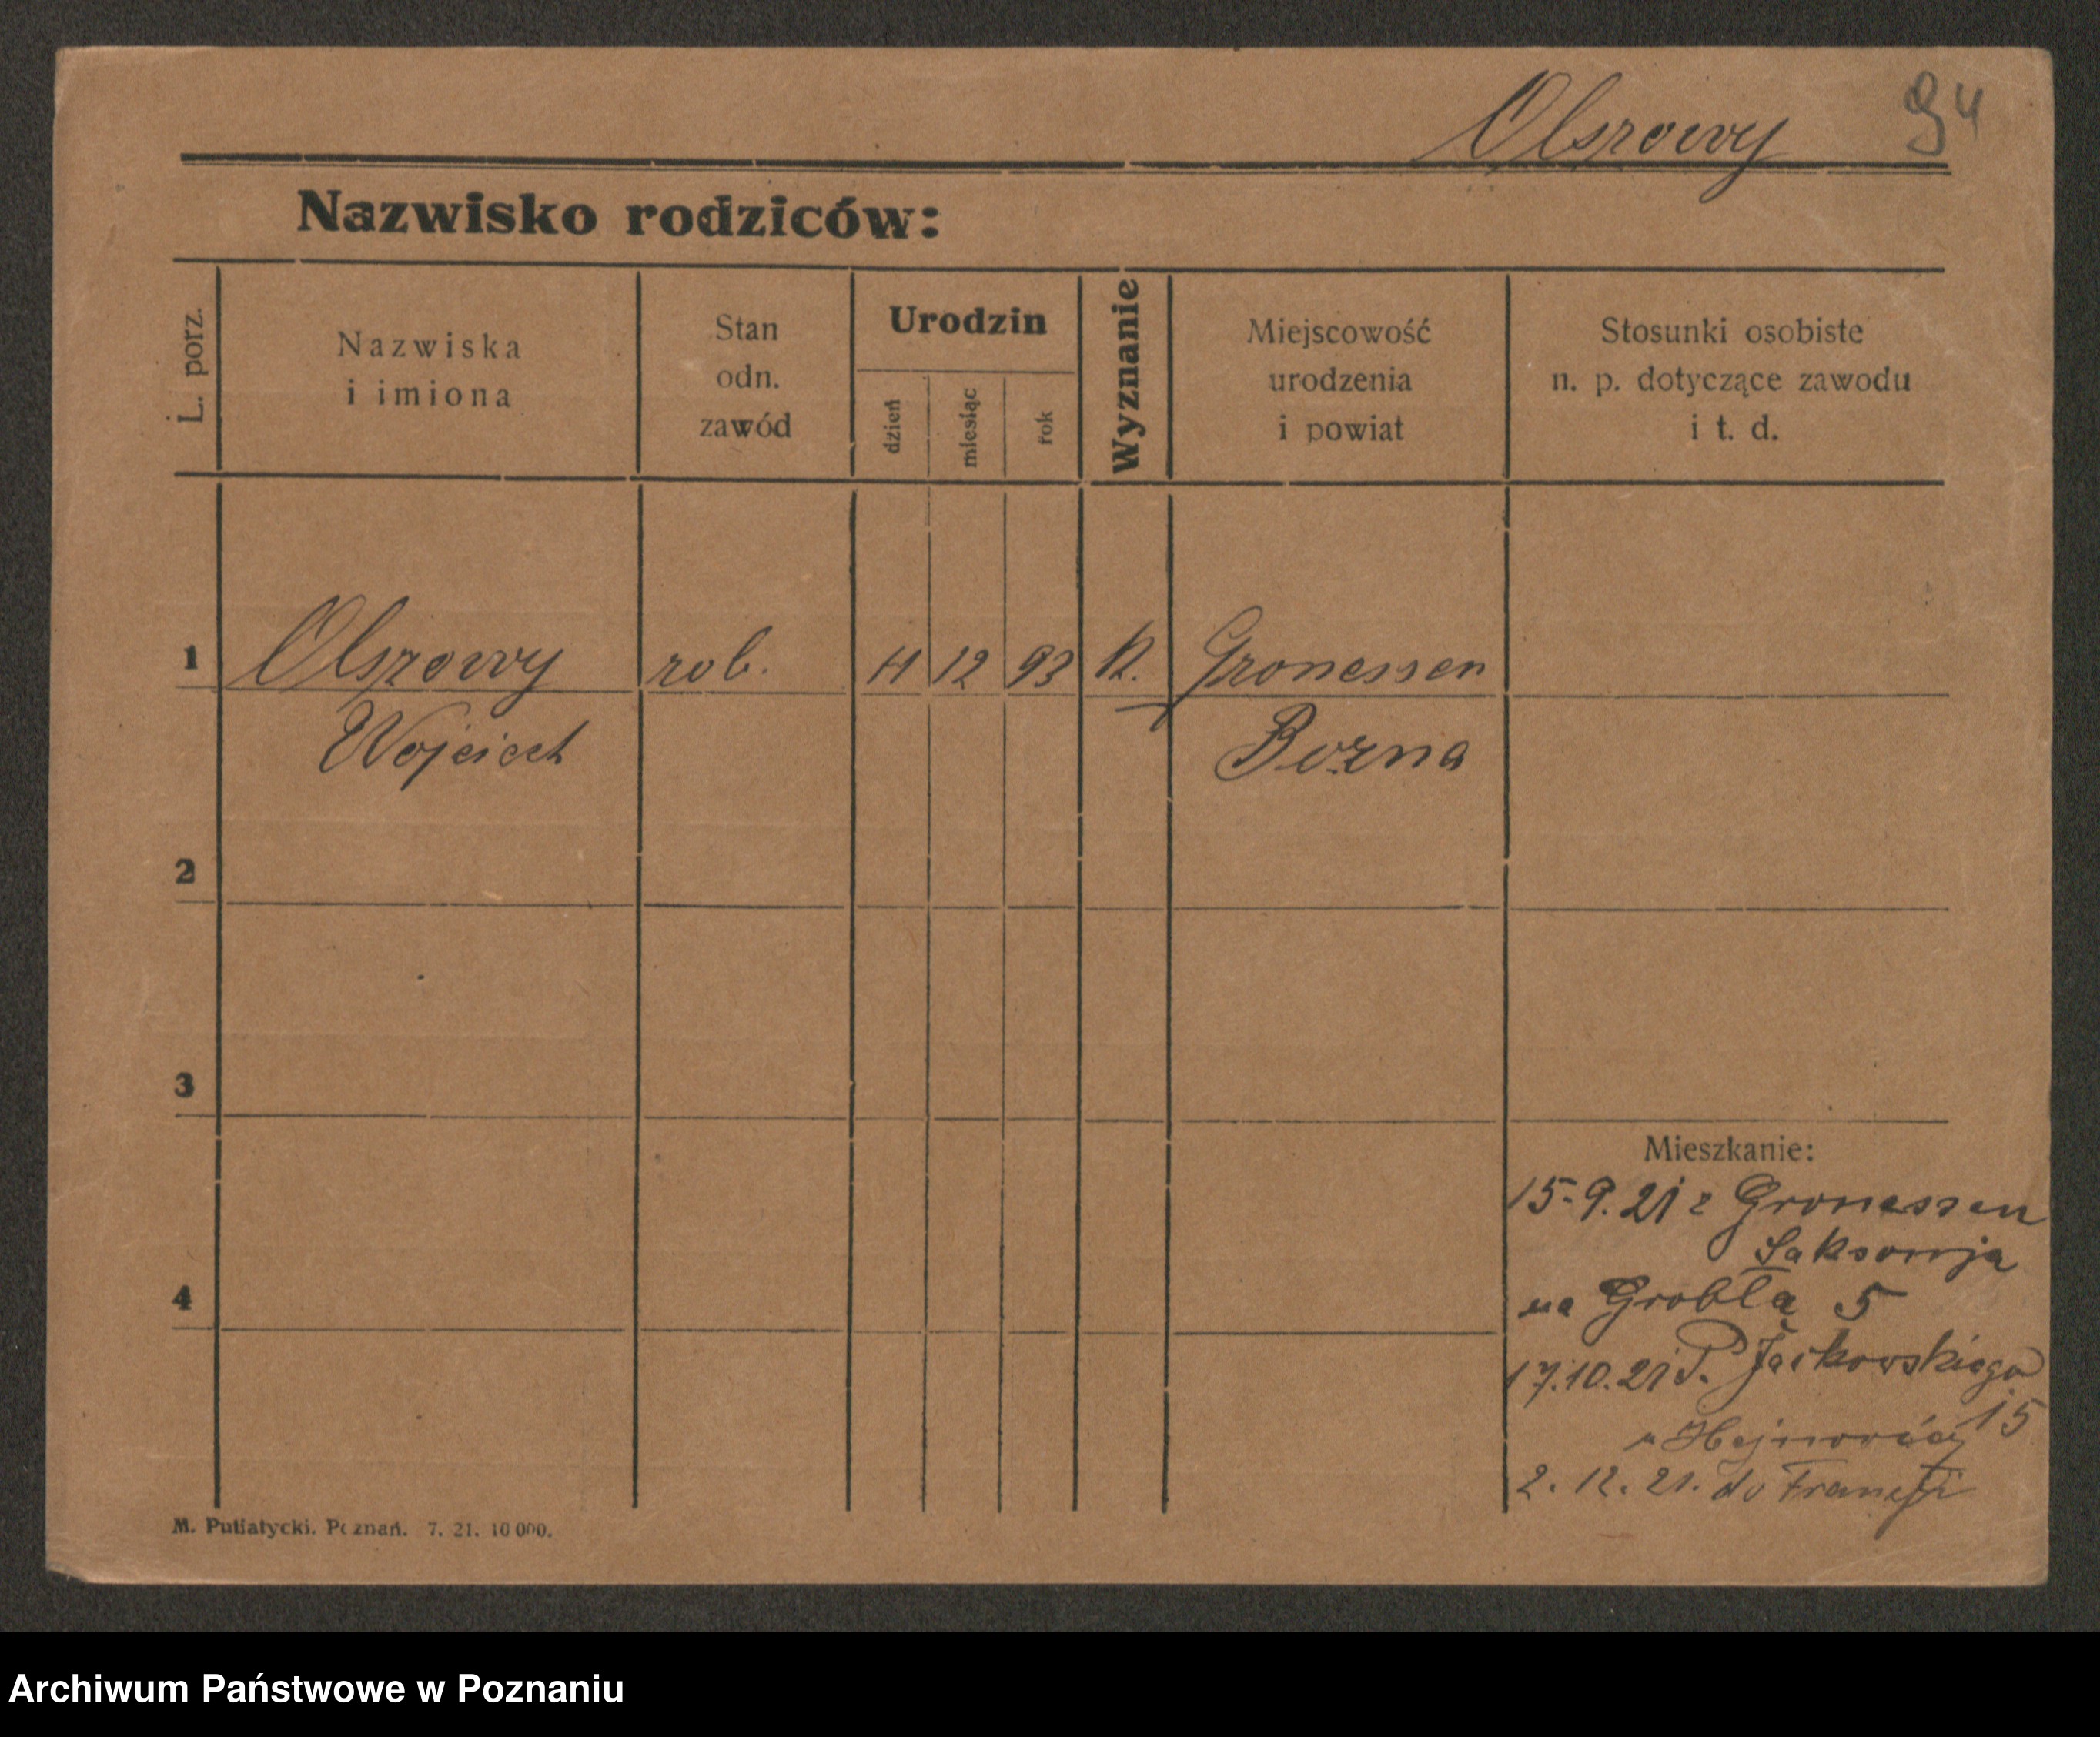 94
Olszowy
Nazwisko rodziców:
L. porz.
Nazwiska
i imiona
Stan
odn.
zawód
Urodzin
dzień
miesiąc
rok
Wyznanie
Miejscowość
urodzenia
i powiat
Stosunki osobiste
n. p. dotyczące zawodu
i t. d.
1 Olszowy rob. 11 12 93 K. Gronessen
Wojciech Borna
2
3
Mieszkanie:
15.9.21 z Gronessen
Saksonja
4
na Grobla 5
17.10.21 P. Jackowskiego
15
2.12.21. do Francji
M. Putiatycki. Poznań. 7. 21. 10 000.
Archiwum Państwowe w Poznaniu